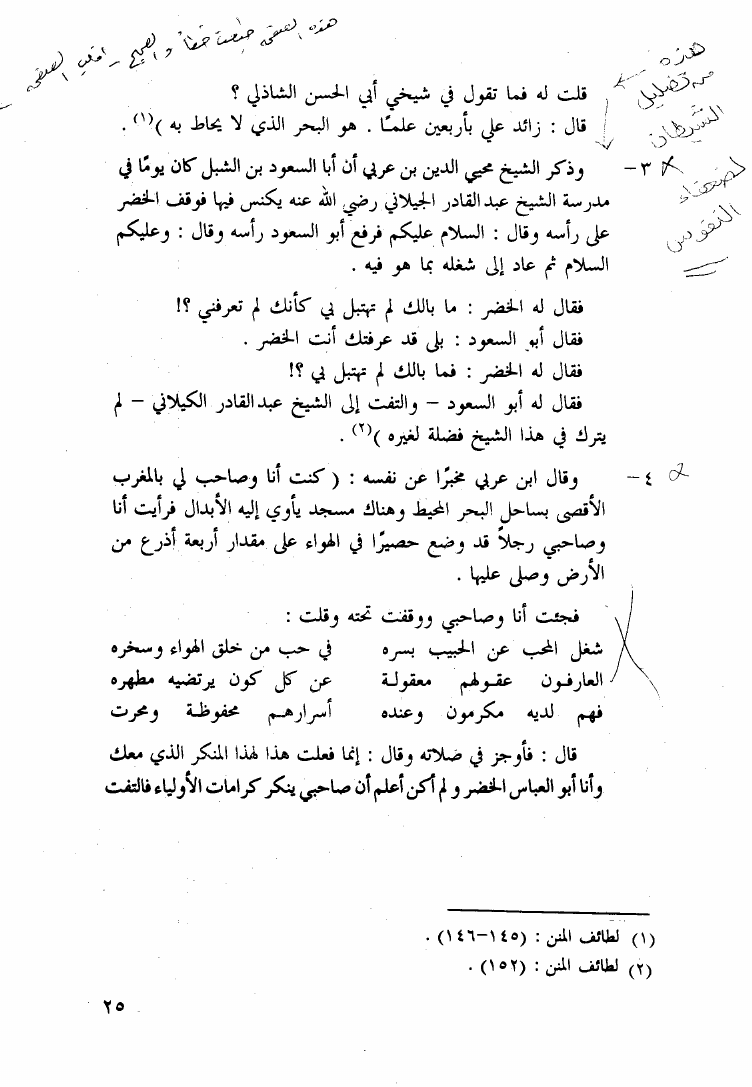 هذه الصفحة طبعت خطأ والصحيح - اقلب الصفحة
هذه
من تضليل
الشيطان
لضعفاء
النفوس
قلت له فما تقول في شيخي أبي الحسن الشاذلي ؟
قال : زائد علي بأربعين علمًا . هو البحر الذي لا يحاط به )(١) .
٣ – وذكر الشيخ محيي الدين بن عربي أن أبا السعود بن الشبل كان يومًا في
مدرسة الشيخ عبدالقادر الجيلاني رضي الله عنه يكنس فيها فوقف الخضر
على رأسه وقال : السلام عليكم فرفع أبو السعود رأسه وقال : وعليكم
السلام ثم عاد إلى شغله بما هو فيه .
فقال له الخضر : ما بالك لم تهتبل بي كأنك لم تعرفني ؟!
فقال أبو السعود : بلى قد عرفتك أنت الخضر .
فقال له الخضر : فما بالك لم تهتبل بي ؟!
فقال له أبو السعود – والتفت إلى الشيخ عبدالقادر الكيلاني – لم
يترك في هذا الشيخ فضلة لغيره )(٢) .
٤ – وقال ابن عربي مخبرًا عن نفسه : ( كنت أنا وصاحب لي بالمغرب
الأقصى بساحل البحر المحيط وهناك مسجد يأوي إليه الأبدال فرأيت أنا
وصاحبي رجلاً قد وضع حصيرًا في الهواء على مقدار أربعة أذرع من
الأرض وصلى عليها .
فجئت أنا وصاحبي ووقفت تحته وقلت :
شغل المحب عن الحبيب بسره في حب من خلق الهواء وسخره
العارفون عقولهم معقولة عن كل كون يرتضيه مطهره
فهم لديه مكرمون وعنده أسرارهم محفوظة ومحرت
قال : فأوجز في صلاته وقال : إنما فعلت هذا لهذا المنكر الذي معك
وأنا أبو العباس الخضر ولم أكن أعلم أن صاحبي ينكر كرامات الأولياء فالتفت
(١) لطائف المنن : (١٤٥–١٤٦) .
(٢) لطائف المنن : (١٥٢) .
٢٥